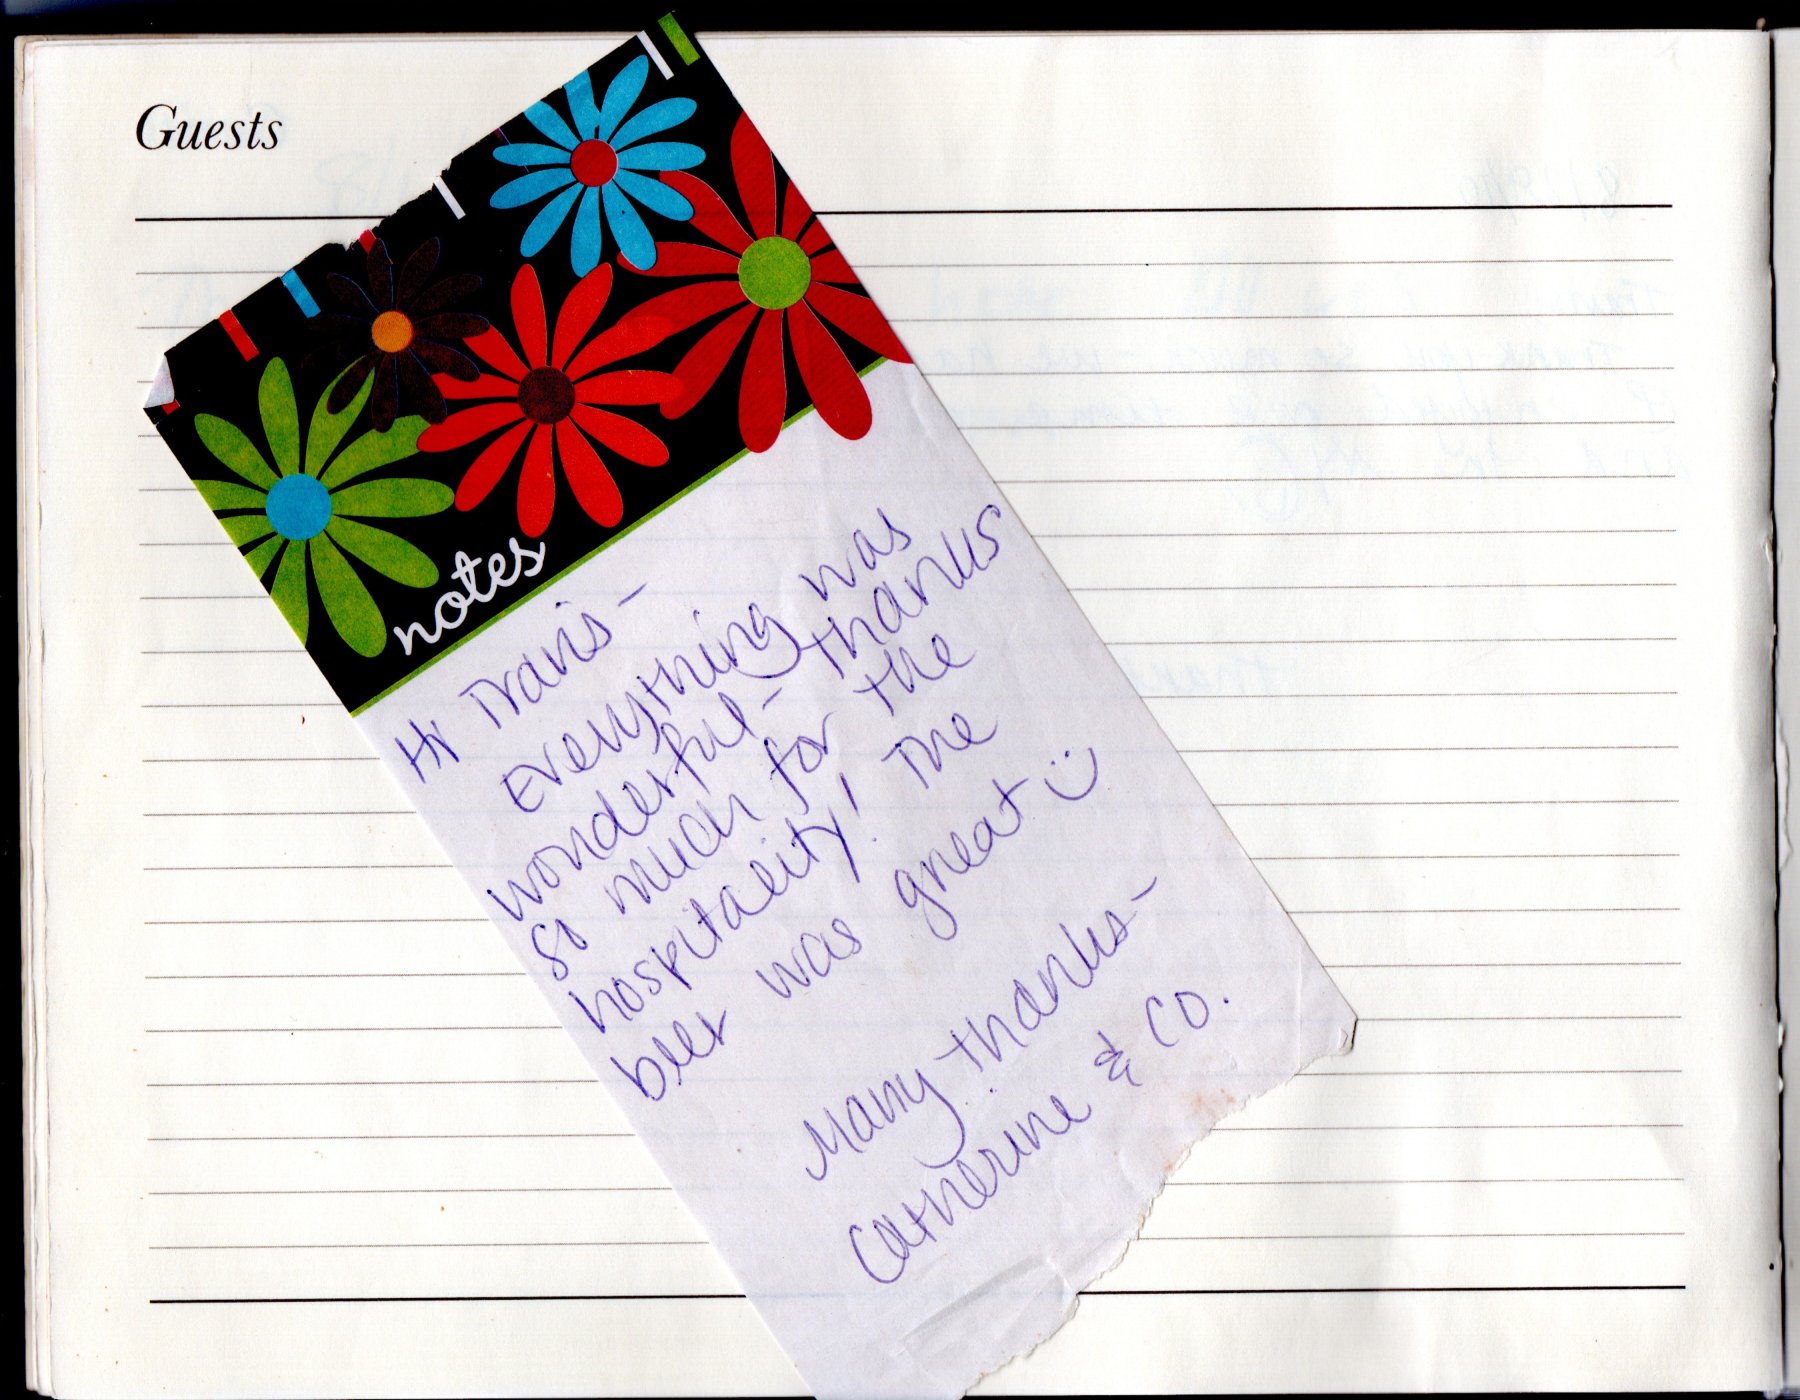 Guests
notes
Hi Travis -
Everything was
wonderful - thanks
so much for the
hospitality! The
beer was great :)
Many thanks -
Catherine & Co.